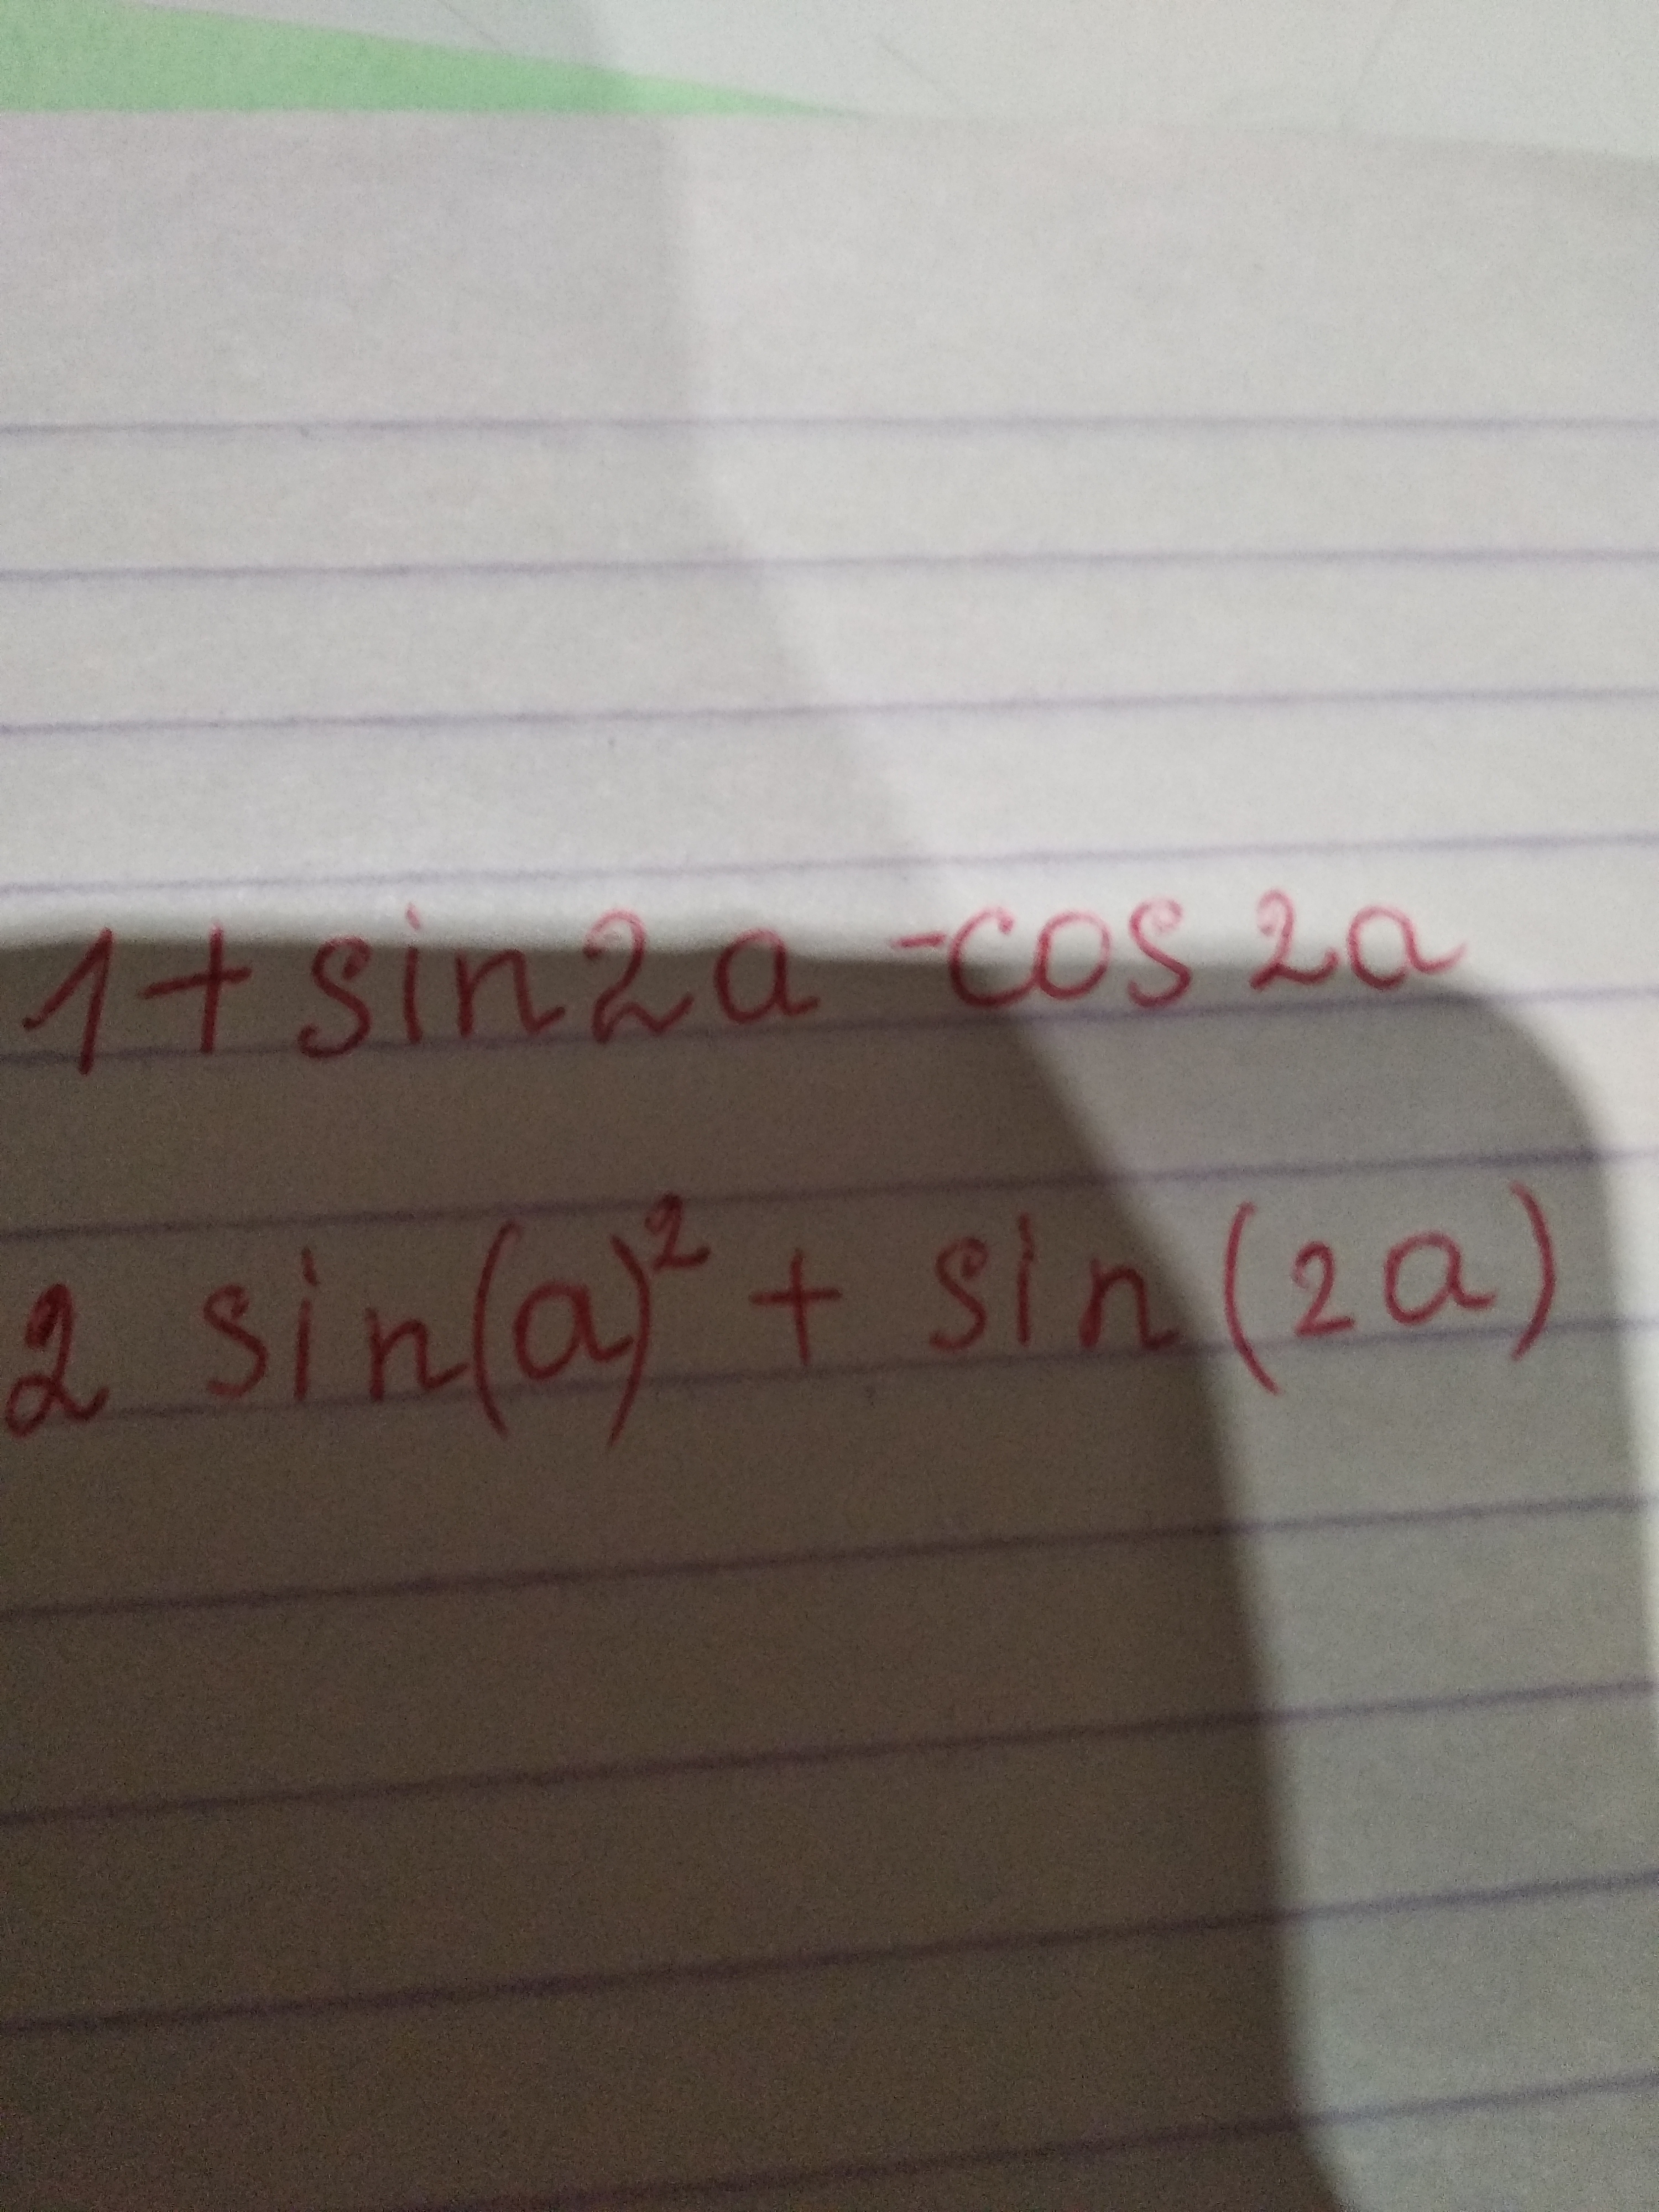 1+sin2a-cos2a
2 sin(a)²+ sin(2a)